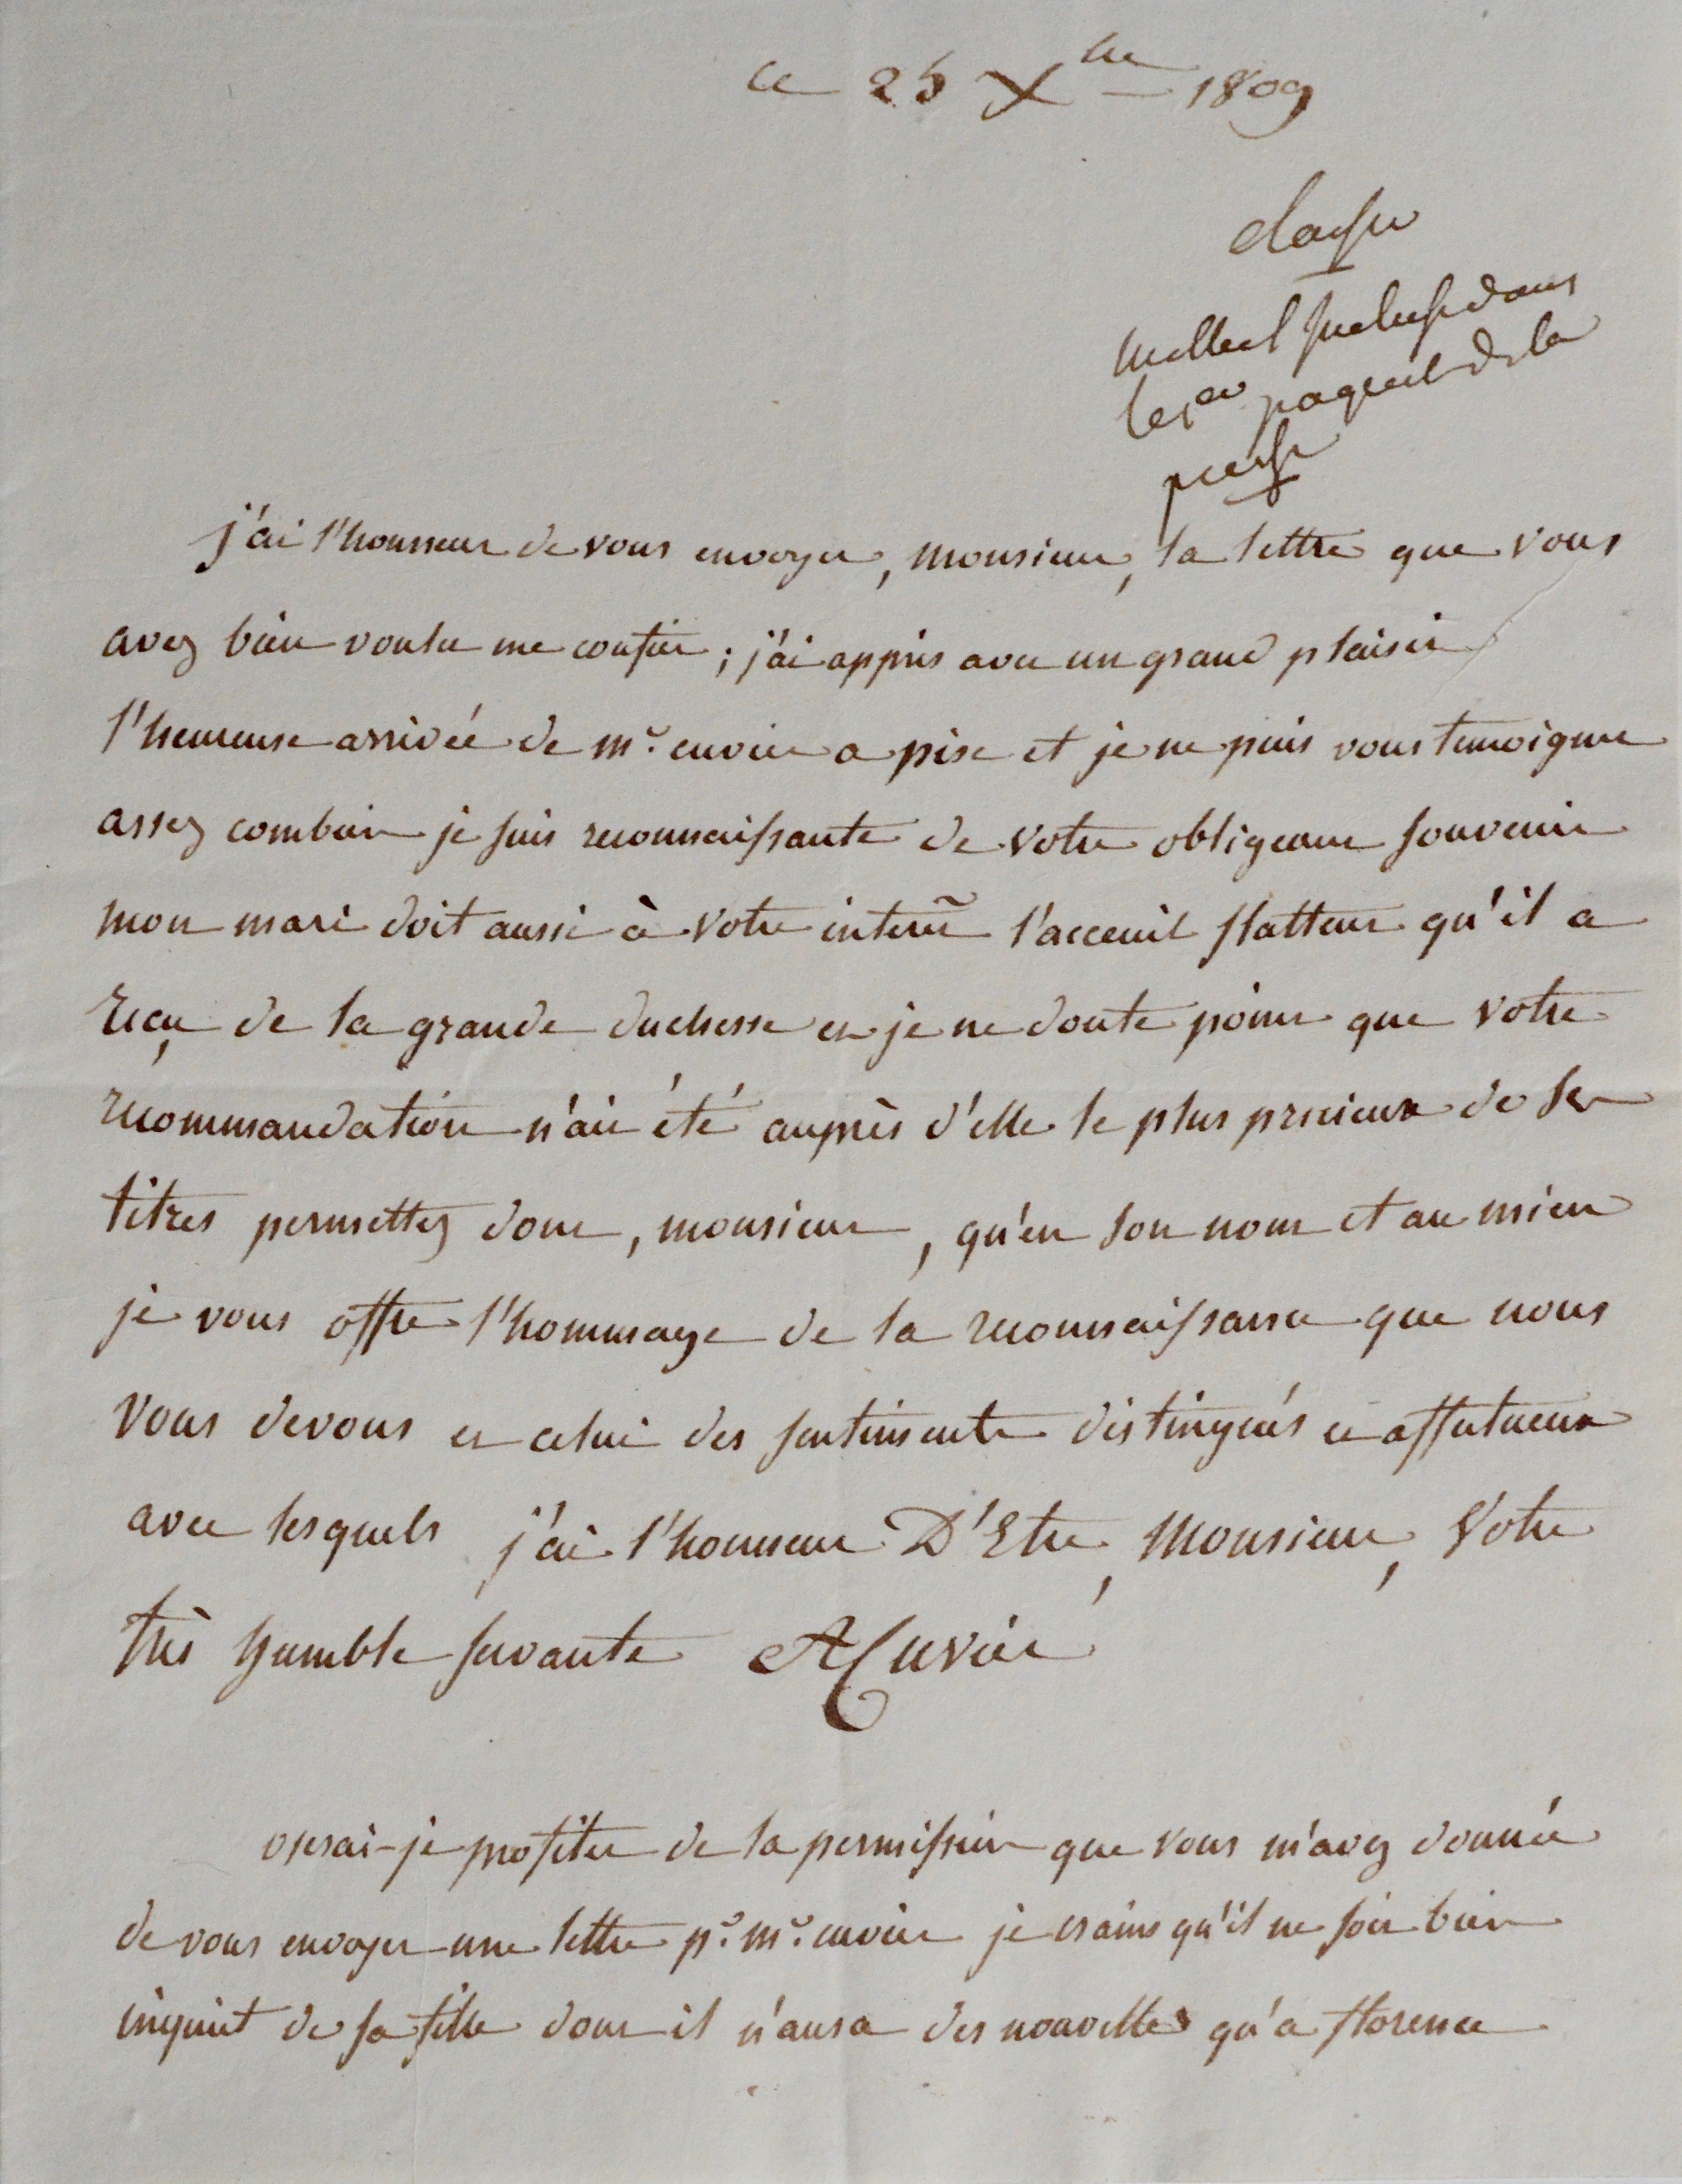 ce 25 Xbre 1809
classer
mettre l'incluse dans
le 1er paquet de la
j'ai l'honneur de vous envoyer, monsieur, la lettre que vous
avez bien voulu me confier; j'ai appris avec un grand plaisir
l'heureuse arrivée de mr. cuvier a pise et je ne puis vous temoigner
assez combien je suis reconnaissante de votre obligeant souvenir
mon mari doit aussi à votre interêt l'acceuil flatteur qu'il a
reçu de la grande duchesse et je ne doute point que votre
recommandation n'ait été auprès d'elle le plus precieux de ses
titres permettez donc, monsieur, qu'en son nom et au mien
je vous offre l'hommage de la reconnaissance que nous
vous devons et celui des sentiments distingués et affectueux
avec lesquels j'ai l'honneur D'Etre, Monsieur, Votre
très humble servante A Cuvier
oserai-je profiter de la permission que vous m'avez donnée
de vous envoyer une lettre pr. mr. cuvier je crains qu'il ne soit bien
inquiet de sa fille dont il n'aura des nouvelles qu'a florence